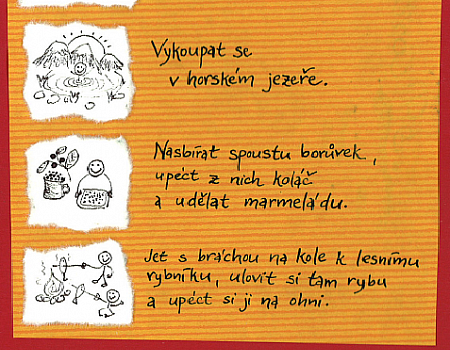 Vykoupat se
v horském jezeře.
Nasbírat spoustu borůvek,
upéct z nich koláč
a udělat marmeládu.
Jet s bráchou na kole k lesnímu
rybníku, ulovit si tam rybu
a upéct si ji na ohni.